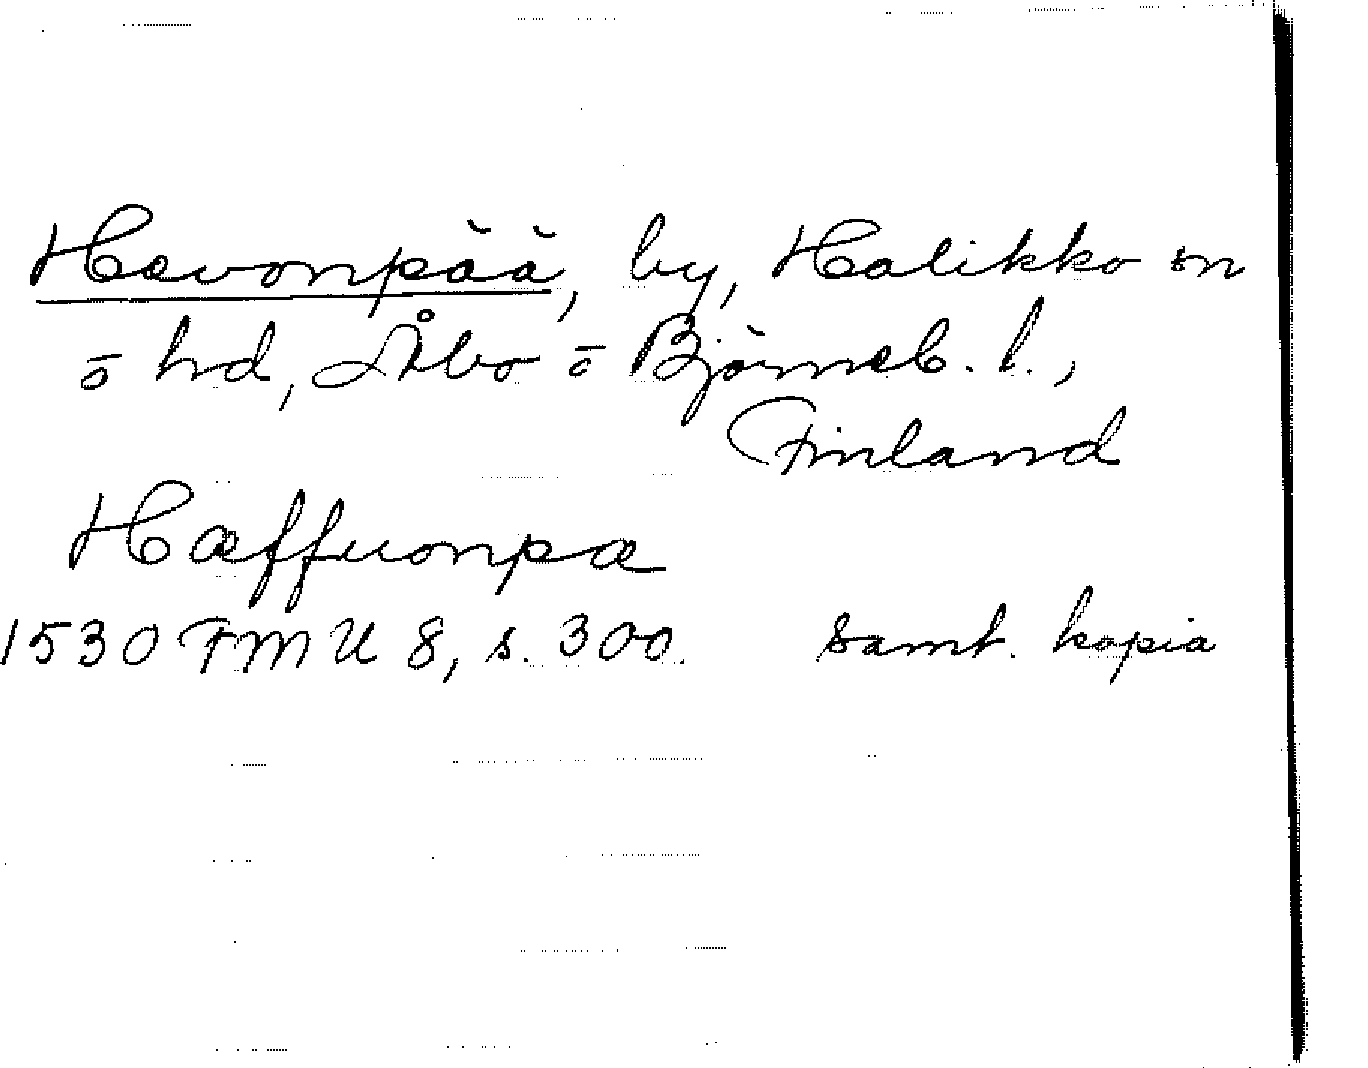 Hevonpää, by, Halikko sn
o hd, Åbo o Björneb. l.,
Finland
Hæffuonpæ
1530 FMU 8, s. 300. samt. kopia